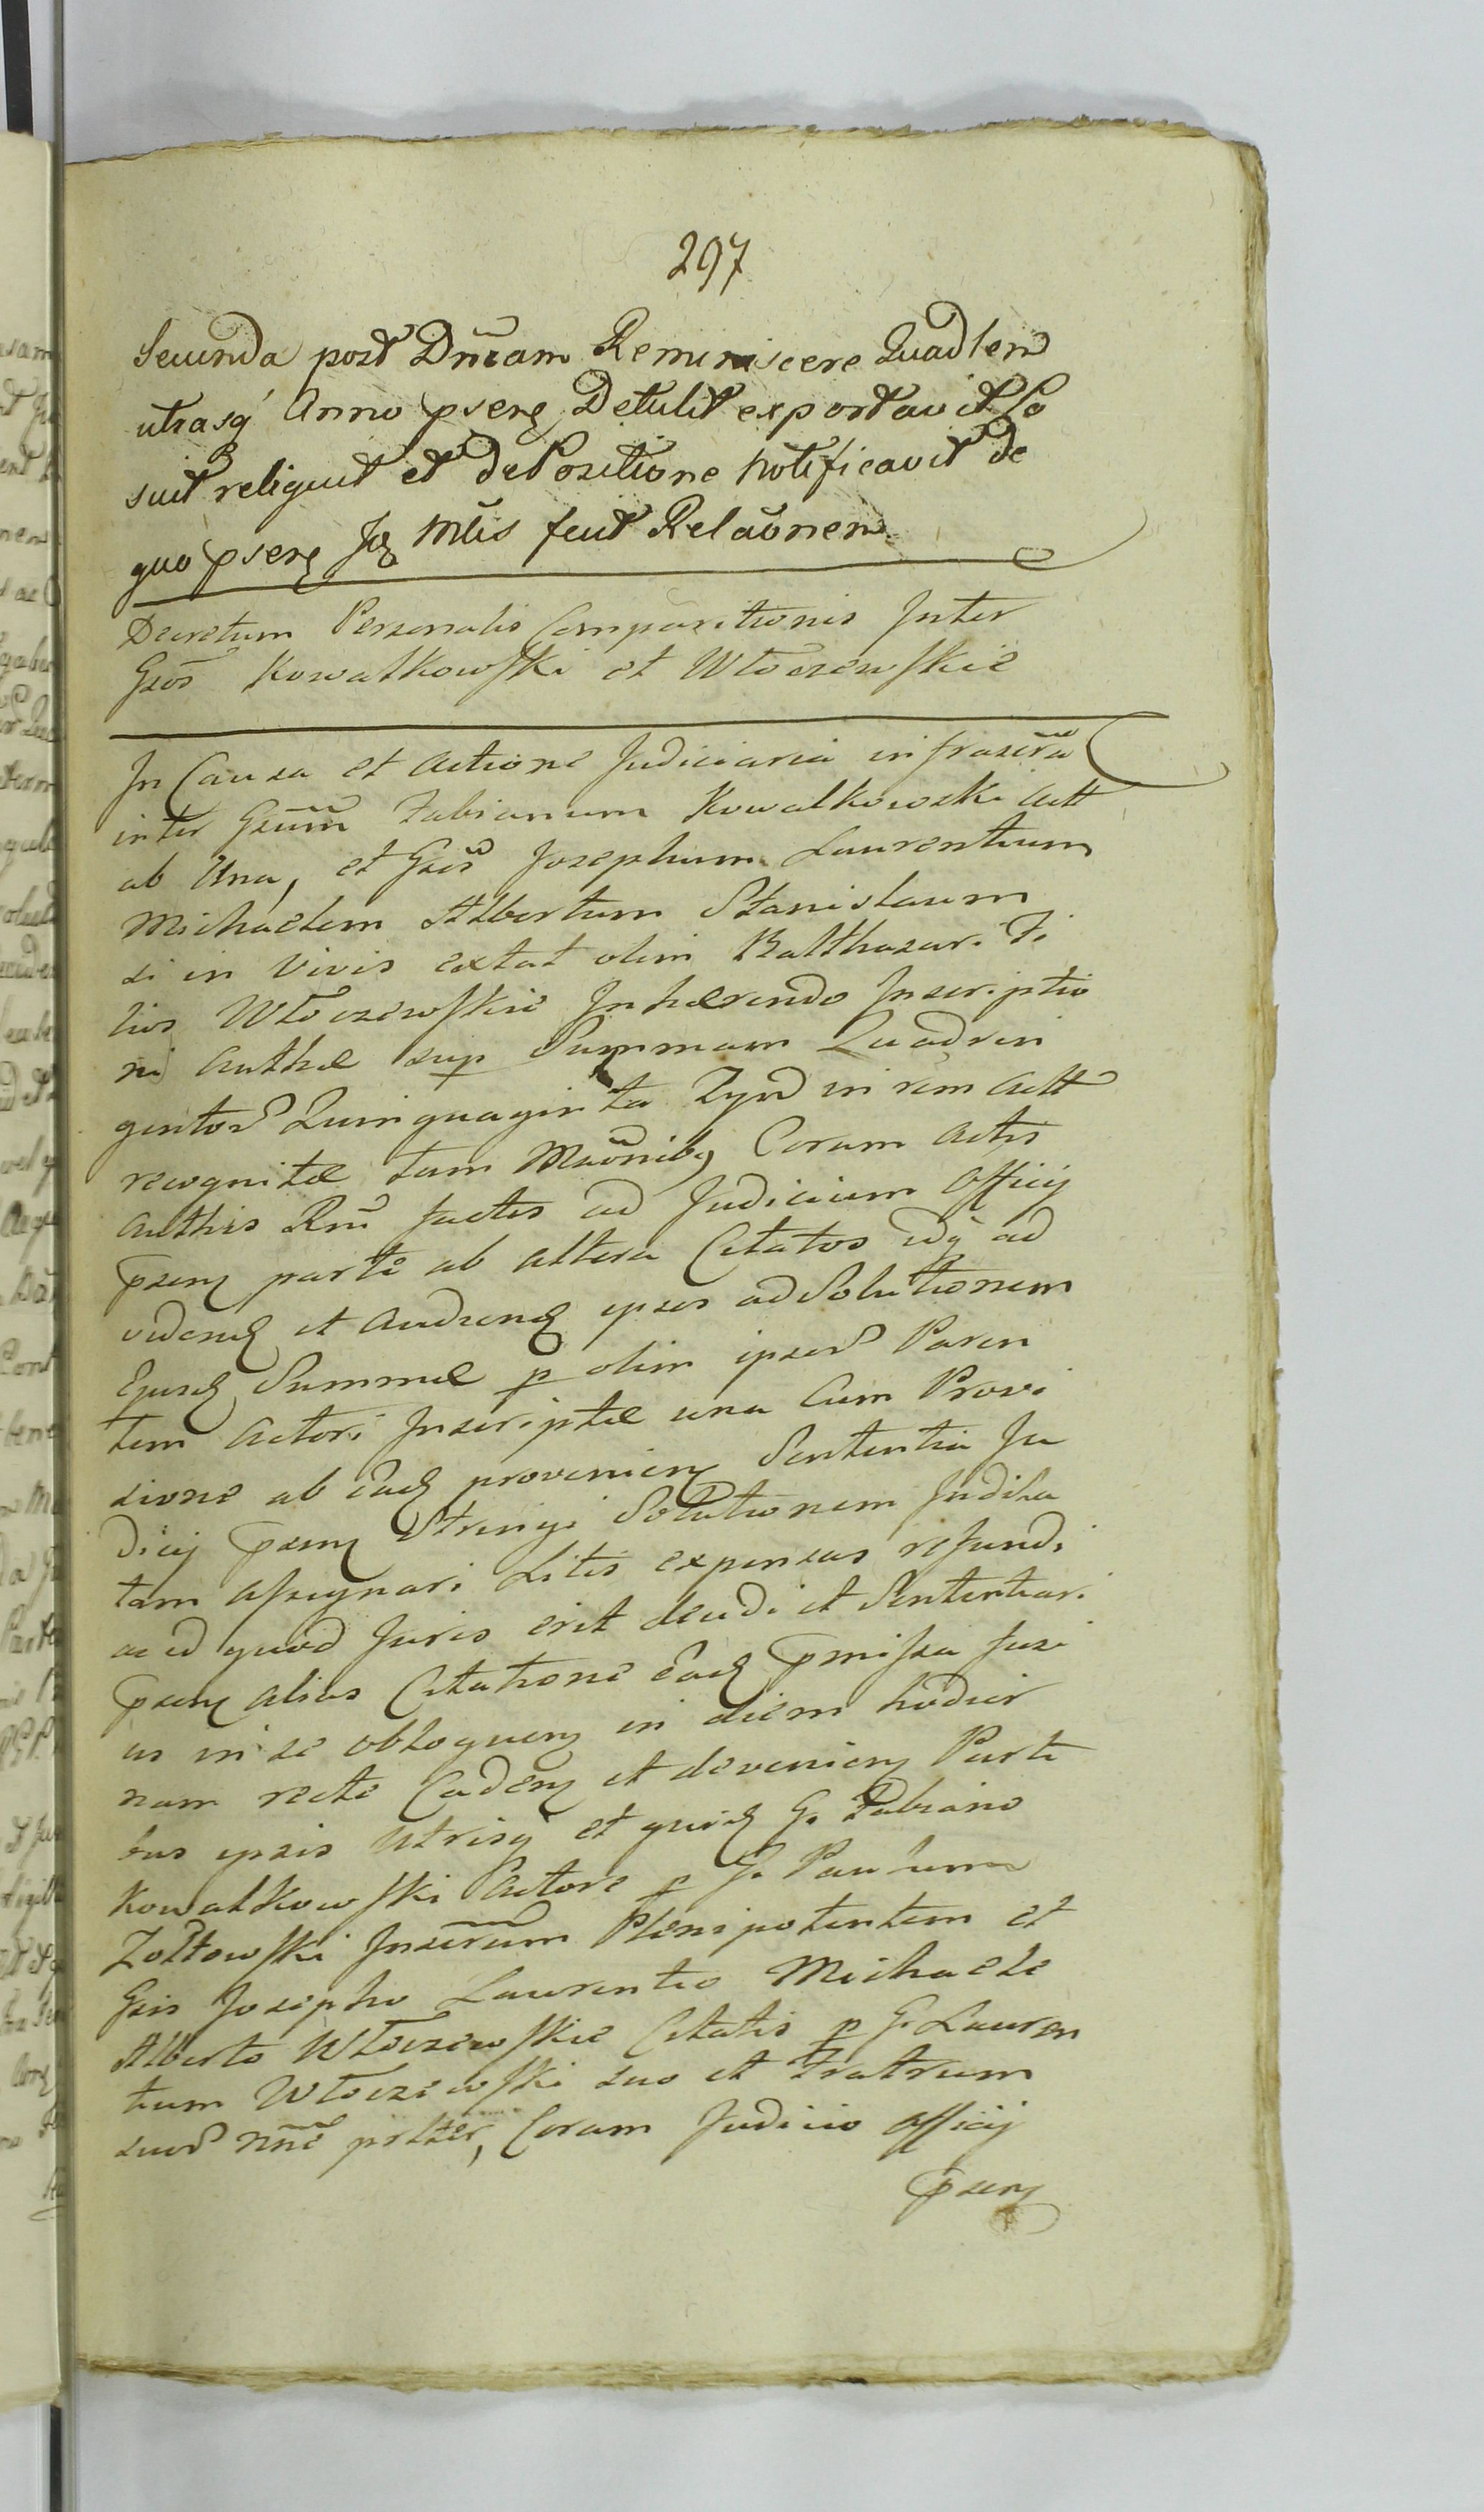 297
Secunda post Dnicam Reminiscere Quadlem
utrasq Anno pserę Detulit exportavit Po
suit reliquit et de Positione notificavit de
quo pserę Jg Mlis fecit Relaõnem
Decretum Personalis Comparitionis Inter
Gsos Kowalkowski et Włoczewskie
In Causa et Actione Judiciaria infrascra
inter Gsum Fabianum Kowalkowski Act
ab Una, et Gsos Josephum Laurentium
Michaelem Albertum Stanislaum
si in Vivis extat olim Balthasari Fi
lios Włoczewskie Inhærendo Inscriptio
ni Authæ sup Summam Quadrin
gentor Quinquaginta Zynd in rem Act
recognitæ tam Mnõnibq Coram Actis
Authis Rnu factis ad Judicium Officij
psenę parte ab altera Citatos idq ad
videndę et Audiendę ipsos ad Solutionem
Ejusdę Summæ p olim ipsor Paren
tem Actori Inscriptæ una Cum Provi
sione ab eadę provenienę Sententia Ju
dicij psenę Stringi Solutionem Judica
tam Assignari Litis expensas refundi
ac id quod Juris erit decidi et Sententiari
psenę alias Citatione eadę pmissa fusi
us in se obloquenę in diem hodier
nam recte Cadenę et devenienę Parti
bus ipsis Utrisq et quidę G. Fabiano
Kowalkowski Actore p G. Paulum
Zołtowski Inscrum Plenipotentem et
Gsis Josepho Laurentio Michaele
Alberto Włoczewskie Citatis p G. Lauren
tium Włoczewski suo et Fratrum
suor nne prltter, Coram Judicio Officij
psenę